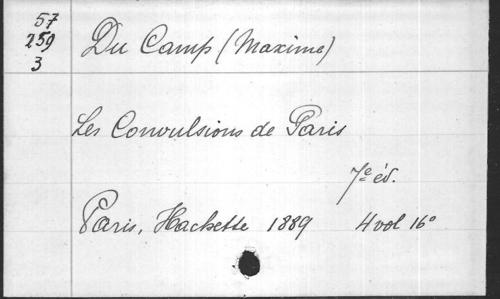 57
259
3
Du Camp (Maxime)
Les Convulsions de Paris
7e éd.
Paris, Hachette 1889 4 vol 16°